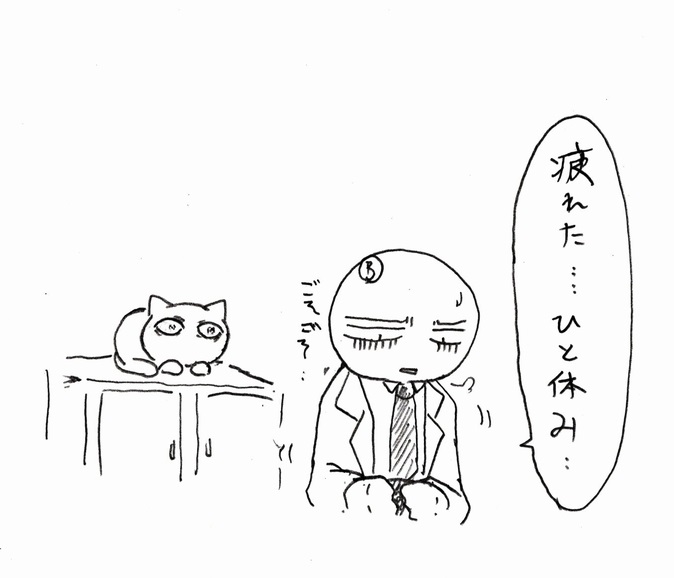 疲れた……ひと休み…
B
ごそごそ…